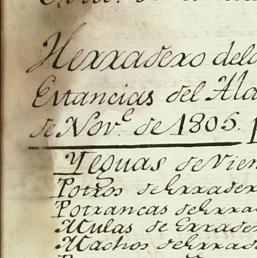 Herradero delo
Estancias del Ala
de Nov.e de 1805.
Yeguas de Vien
Potros de herrader
Potrancas de herra
Mulas de Errader
Machos de herra